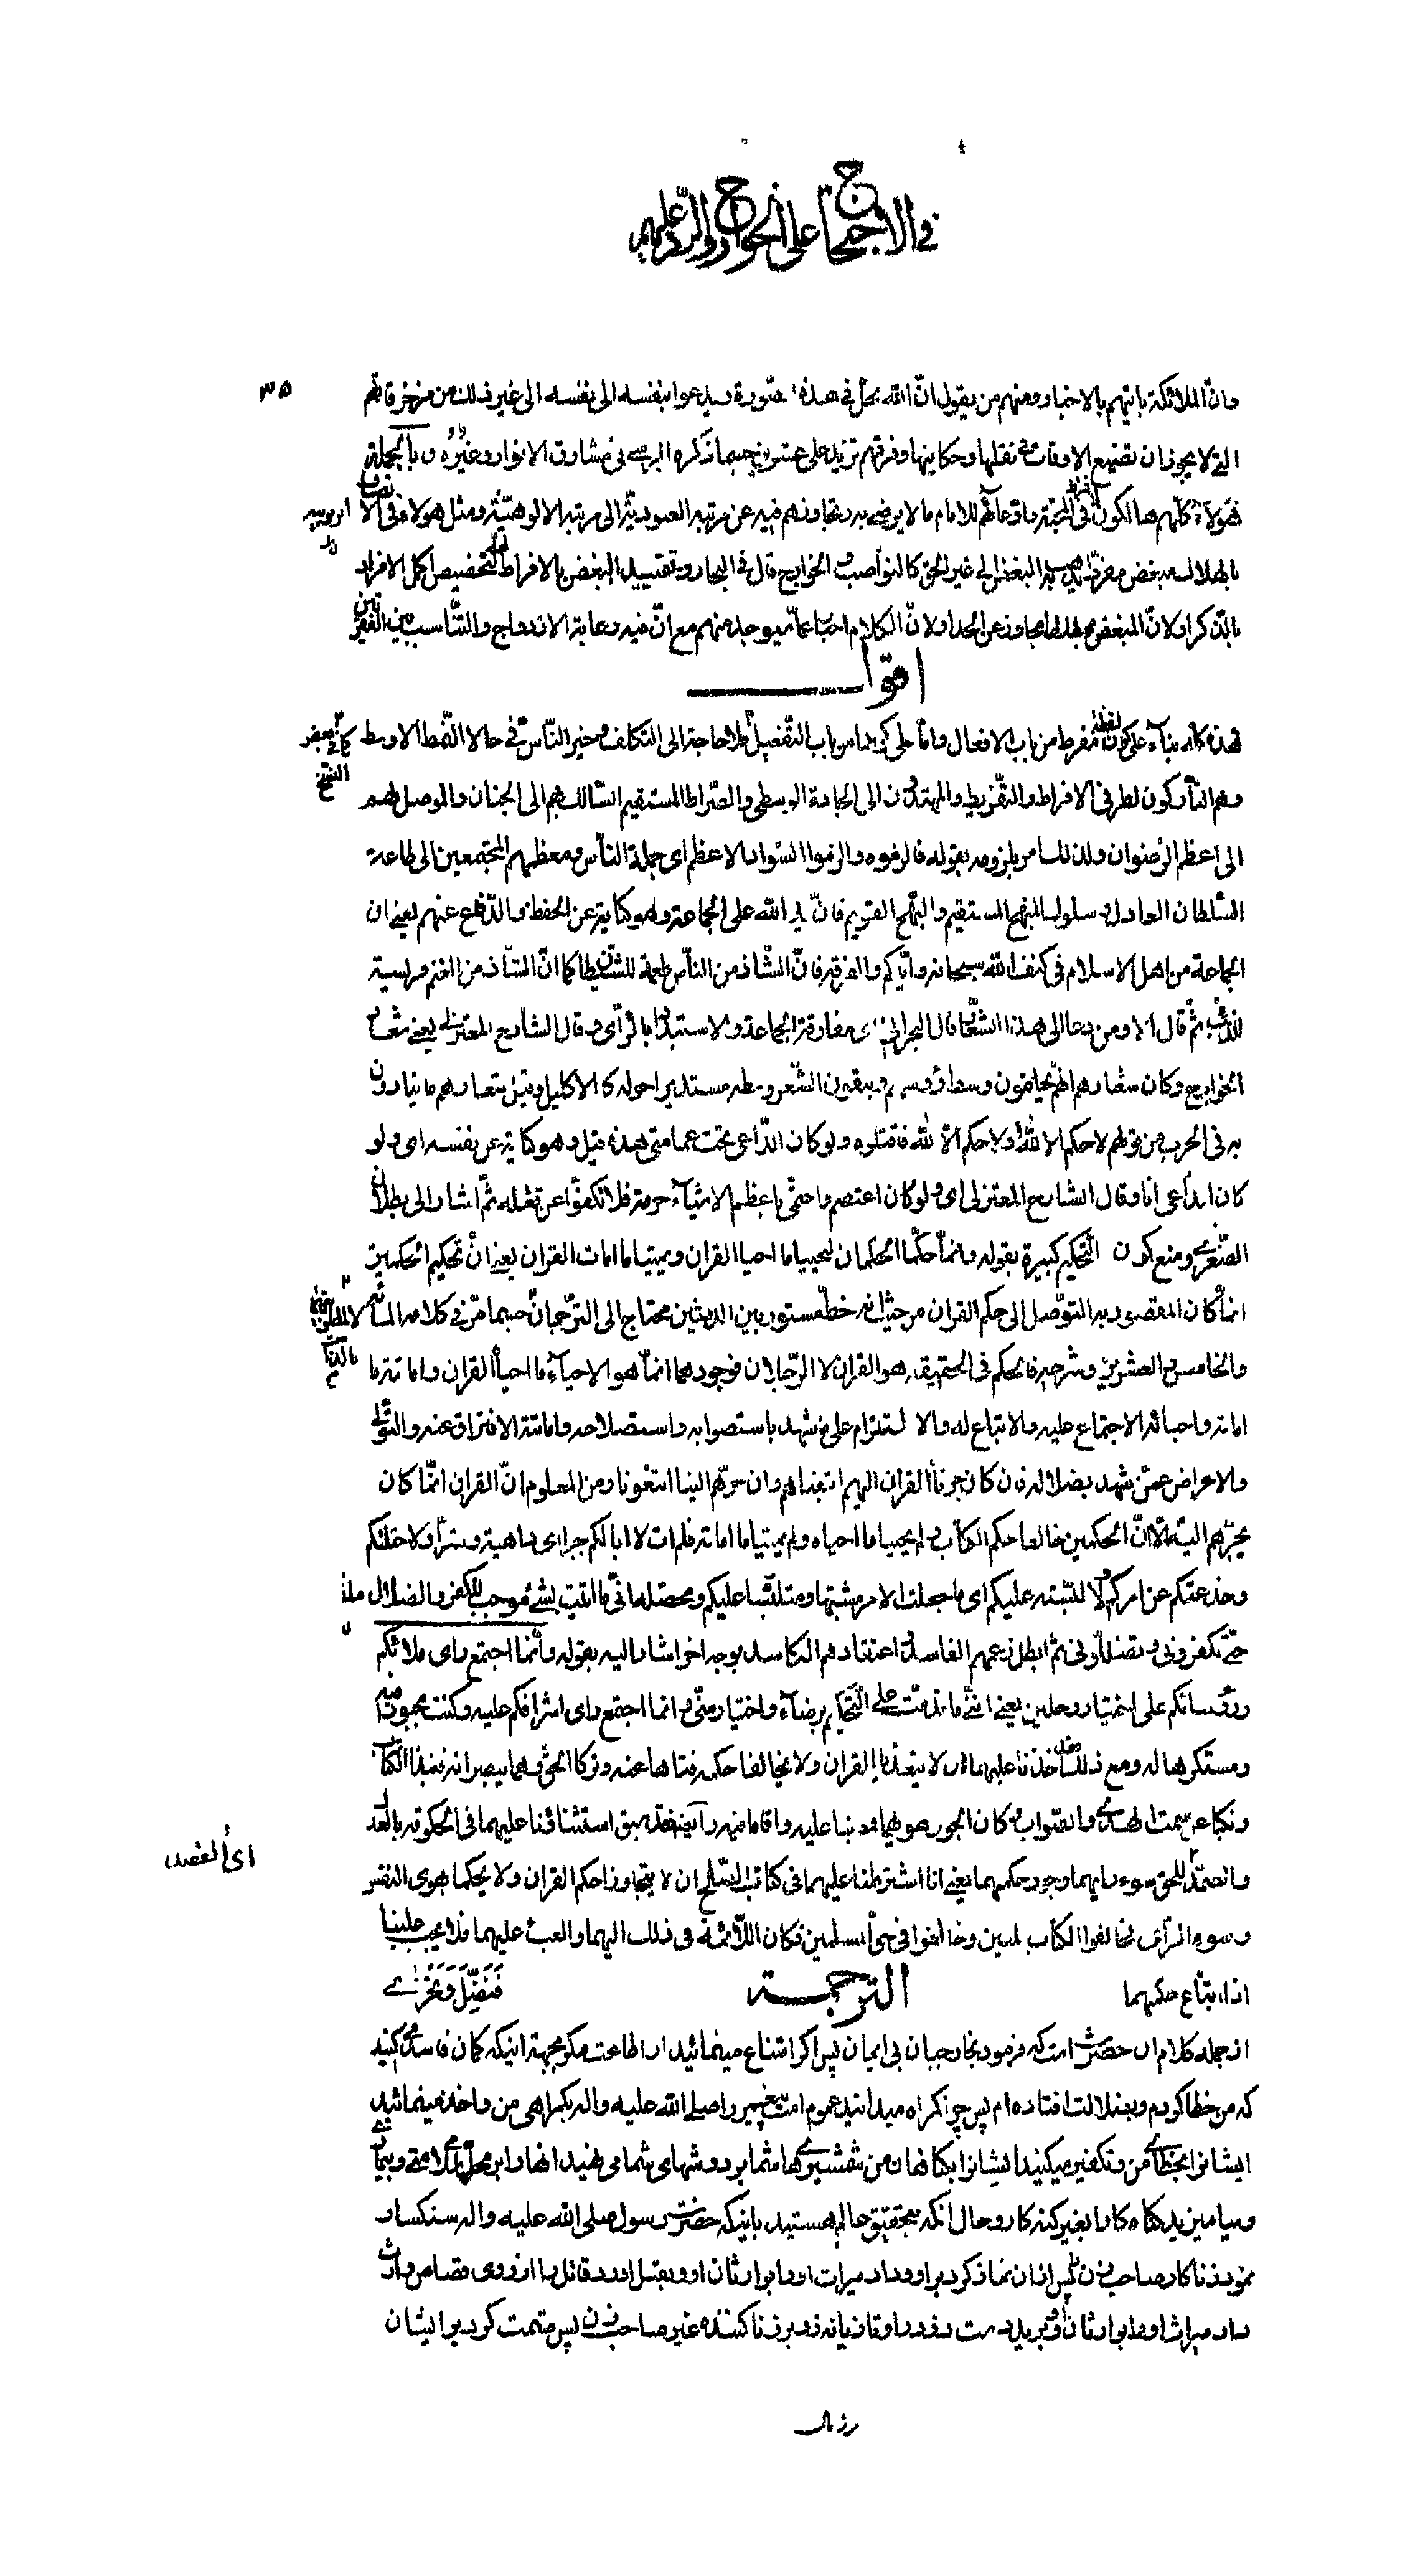 في الاحتجاج على الخوارج والرد عليهم
٣٥
وانّ الملائكة ياتيهم بالاخبار ومنهم من يقول انّ الله يحلّ في هذه الصّورة ويدعوا بنفسه الى نفسه الى غير ذلك من مزخرفاتهم
التي لا يجوز ان تضيع الاوقات في نقلها وحكايتها وفرقهم تزيد على عشرين حسبما ذكره البرسي في مشارق الانوار وغيره وبالجملة
فهؤلاء كلّهم هالكون لافراطهم في المحبّة وادّعائهم للامام ما لا يرضى به وتجاوزهم فيه عن مرتبة العبوديّة الى مرتبة الالوهيّة ومثل هؤلاء في الاتصاف
بالهلاك مبغض مفرط يذهب به البغض الى غير الحق كالنواصب والخوارج قال في البحار وتقييد البغض بالافراط لعله لتخصيص اكمل الافراد
بالذكر او لانّ المبغض مطلقا مجاوز عن الحد او لانّ الكلام اخبار عمّا سيوجد منهم مع انّ فيه رعاية الازدواج والتناسب بين الفقرتين
اقول
هذه كله بناء على كون لفظة مفرط من باب الافعال وامّا على كونها من باب التفعيل فلا حاجة الى التكلف وخير النّاس فيّ حالا النّمط الاوسط كما في بعض النسخ
وهم التّاركون لطرفي الافراط والتفريط والمهتدون الى الجادة الوسطى والصّراط المستقيم السّالك بهم الى الجنان والموصل لهم
الى اعظم الرضوان ولذلك امر بلزومه بقوله فالزموه والزموا السّواد الاعظم اى جملة النّاس ومعظمهم المجتمعين الى طاعة
السّلطان العادل وسلوك المنهج المستقيم والنهج القويم فانّ يد الله على الجماعة وهو كناية عن الحفظ والدّفاع عنهم يعنى ان
الجماعة من اهل الاسلام في كنف الله سبحانه وايّاكم والفرقة فانّ الشاذ من النّاس طعمة للشّيطان كما انّ الشاذ من الغنم فريسة
للذئب ثمّ قال الا ومن دعا الى هذا الشعار قال البحراني اى مفارقة الجماعة والاستبداد بالرّاى وقال الشارح المعتزلى يعنى شعار
الخوارج وكان شعارهم انّهم يحلقون وسط رؤسهم ويبقون الشّعر وسطه مستديرا حوله كالاكليل وقيل شعارهم ما ينادون
به في الحرب من قولهم لا حكم الا لله ولا حكم الّا لله فاقتلوه ولو كان الدّاعى تحت عمامتى هذه قيل وهو كناية عن نفسه اى ولو
كان الداعى انا وقال الشارح المعتزلى اى ولو كان اعتصم واحتمى باعظم الاشياء حرمة فلا تكفّوا عن قتله ثمّ اشار الى بطلان
الصّغرى ومنع كون التّحكيم كبيرة بقوله وانّما حكّما الحكمان ليحييا ما احيا القرآن ويميتا ما امات القرآن يعنى انّ تحكيم الحكمين
انّما كان المقصود به التوصّل الى حكم القرآن من حيث انه خطّ مستور بين الدفتين محتاج الى التّرجمان حسبما مرّ في كلامه المأة
والخامس والعشرين وشرحه فالحكم في الحقيقة هو القرآن لا الرّجلان فوجودهما انّما هو لاحياء ما احيا القرآن واماتة ما
اماته واحيائه الاجتماع عليه والاتباع له والالتزام على من شهد باستصوابه واستصلاحه واماتته الافتراق عنه والتولّى
والاعراض عمّن شهد بضلاله فان كان جرنا القرآن اليهم اتبعناهم وان جرّهم الينا اتبعونا ومن المعلوم انّ القرآن انّما كان
يجرّهم اليه الّا انّ الحكمين خالفا حكم الكتاب ولم يحييا ما احياه ولم يميتا ما اماته فلم ات لا ابا لكم بجرا اى داهية وشرّا ولا ختلتكم
وخدعتكم عن امركم ولا لبّسته عليكم اى ما جعلت الامر مشتبها وملتبسا عليكم ومحصله انّي ما اتيت بشيء موجب للكفر والضلال
حتّى تكفروني وتضلّلوني ثم ابطل زعمهم الفاسد واعتقادهم الكاسد بوجه اخر اشار اليه بقوله وانّما اجتمع راى ملائكم
ورؤسائكم على اختيار رجلين يعنى انّي ما اقدمت على التّحكيم برضاء واختيار منّى وانما اجتمع راى اشرافكم عليه وكنت مجبورا فيه
ومستكرها له ومع ذلك فقد اخذنا عليهما ان لا يتعدّيا القرآن ولا يخالفا حكمه فتاها عنه وتركا الحقّ وهما يبصرانه فنبذا الكتاب
ونكبا عن سمت الهدى والصّواب وكان الجور هويهما فمضيا عليه واقاما فيه وايضا فقد سبق استثناؤنا عليهما في الحكومة بالعدل
والصّمد للحق سوء رايهما وجور حكمهما يعنى انا اشترطنا عليهما في كتاب الصّلح ان لا يتجاوزا حكم القرآن ولا يحكما بهوى النفس اى القصد
وسوء الراى فخالفوا الكتاب المبين وخالفوا في حق المسلمين فكان اللّائمة في ذلك اليهما والعتب عليهما فلا يجب علينا
اذا اتباع حكمهما
الترجمة
فنضلّ ونخزى
از جمله كلام ان حضرتست كه فرمود بخارجيان بى ايمان پس اگر امتناع مينمائيد از اطاعت مگر بجهة اينكه گمان فاسد مى كنيد
كه من خطا كردم وبضلالت افتاده ام پس چرا گمراه ميدانيد عموم امت پيغمبر را صلى الله عليه واله بگمراهى من واخذ مينمائيد
ايشانرا بخطاى من وتكفير ميكنيد ايشانرا بگناهان من شمشيرهاى شما بر دوشهاى شما مى نهيد انها را بر محل سلامتى وبيمارى
وميآميزيد گناه كار را بغير گنه كار وحال انكه بتحقيق عالم هستيد باينكه حضرت رسول صلى الله عليه واله سنگسار
نمود زناكار صاحب زن پس از ان نماز كرد بر او وداد ميراث او را بوارثان او وبقتل اورد قاتل را از روى قصاص وارث
داد ميراث او را بوارثان او وبريد دست دزد را وتازيانه زد بر زنا كننده غير صاحب زن پس قسمت كرد بر ايشان